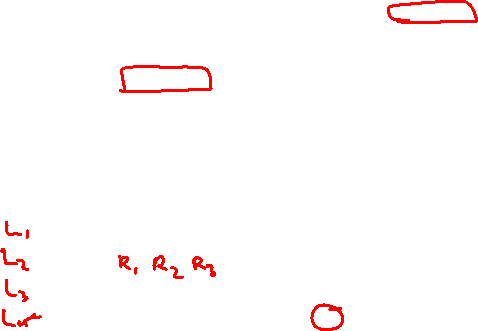 L1
L2 R1 R2 R3
L3